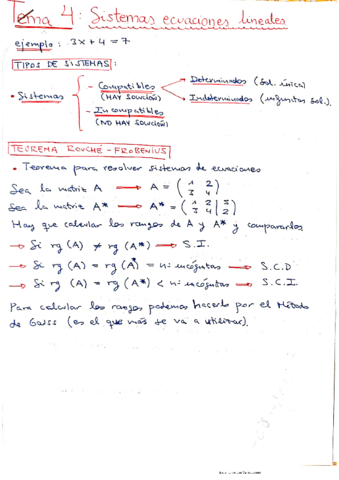 Tema 4: Sistemas ecuaciones lineales
ejemplo: 3x+4=7
TIPOS DE SISTEMAS:
• Sistemas
- Compatibles (HAY SOLUCIÓN)
→ Determinados (sol. única)
→ Indeterminados (infinitas sol.)
- Incompatibles (NO HAY SOLUCIÓN)
TEOREMA ROUCHE-FROBENIUS
• Teorema para resolver sistemas de ecuaciones
Sea la matriz A → A = ( 1 2 / 3 4 )
Sea la matriz A* → A* = ( 1 2 | 3 / 3 4 | 2 )
Hay que calcular los rangos de A y A* y compararlos
→ Si rg (A) ≠ rg (A*) → S.I.
→ Si rg (A) = rg (A*) = nº incógnitas → S.C.D
→ Si rg (A) = rg (A*) < nº incógnitas → S.C.I.
Para calcular los rangos podemos hacerlo por el Método
de Gauss (es el que más se va a utilizar).